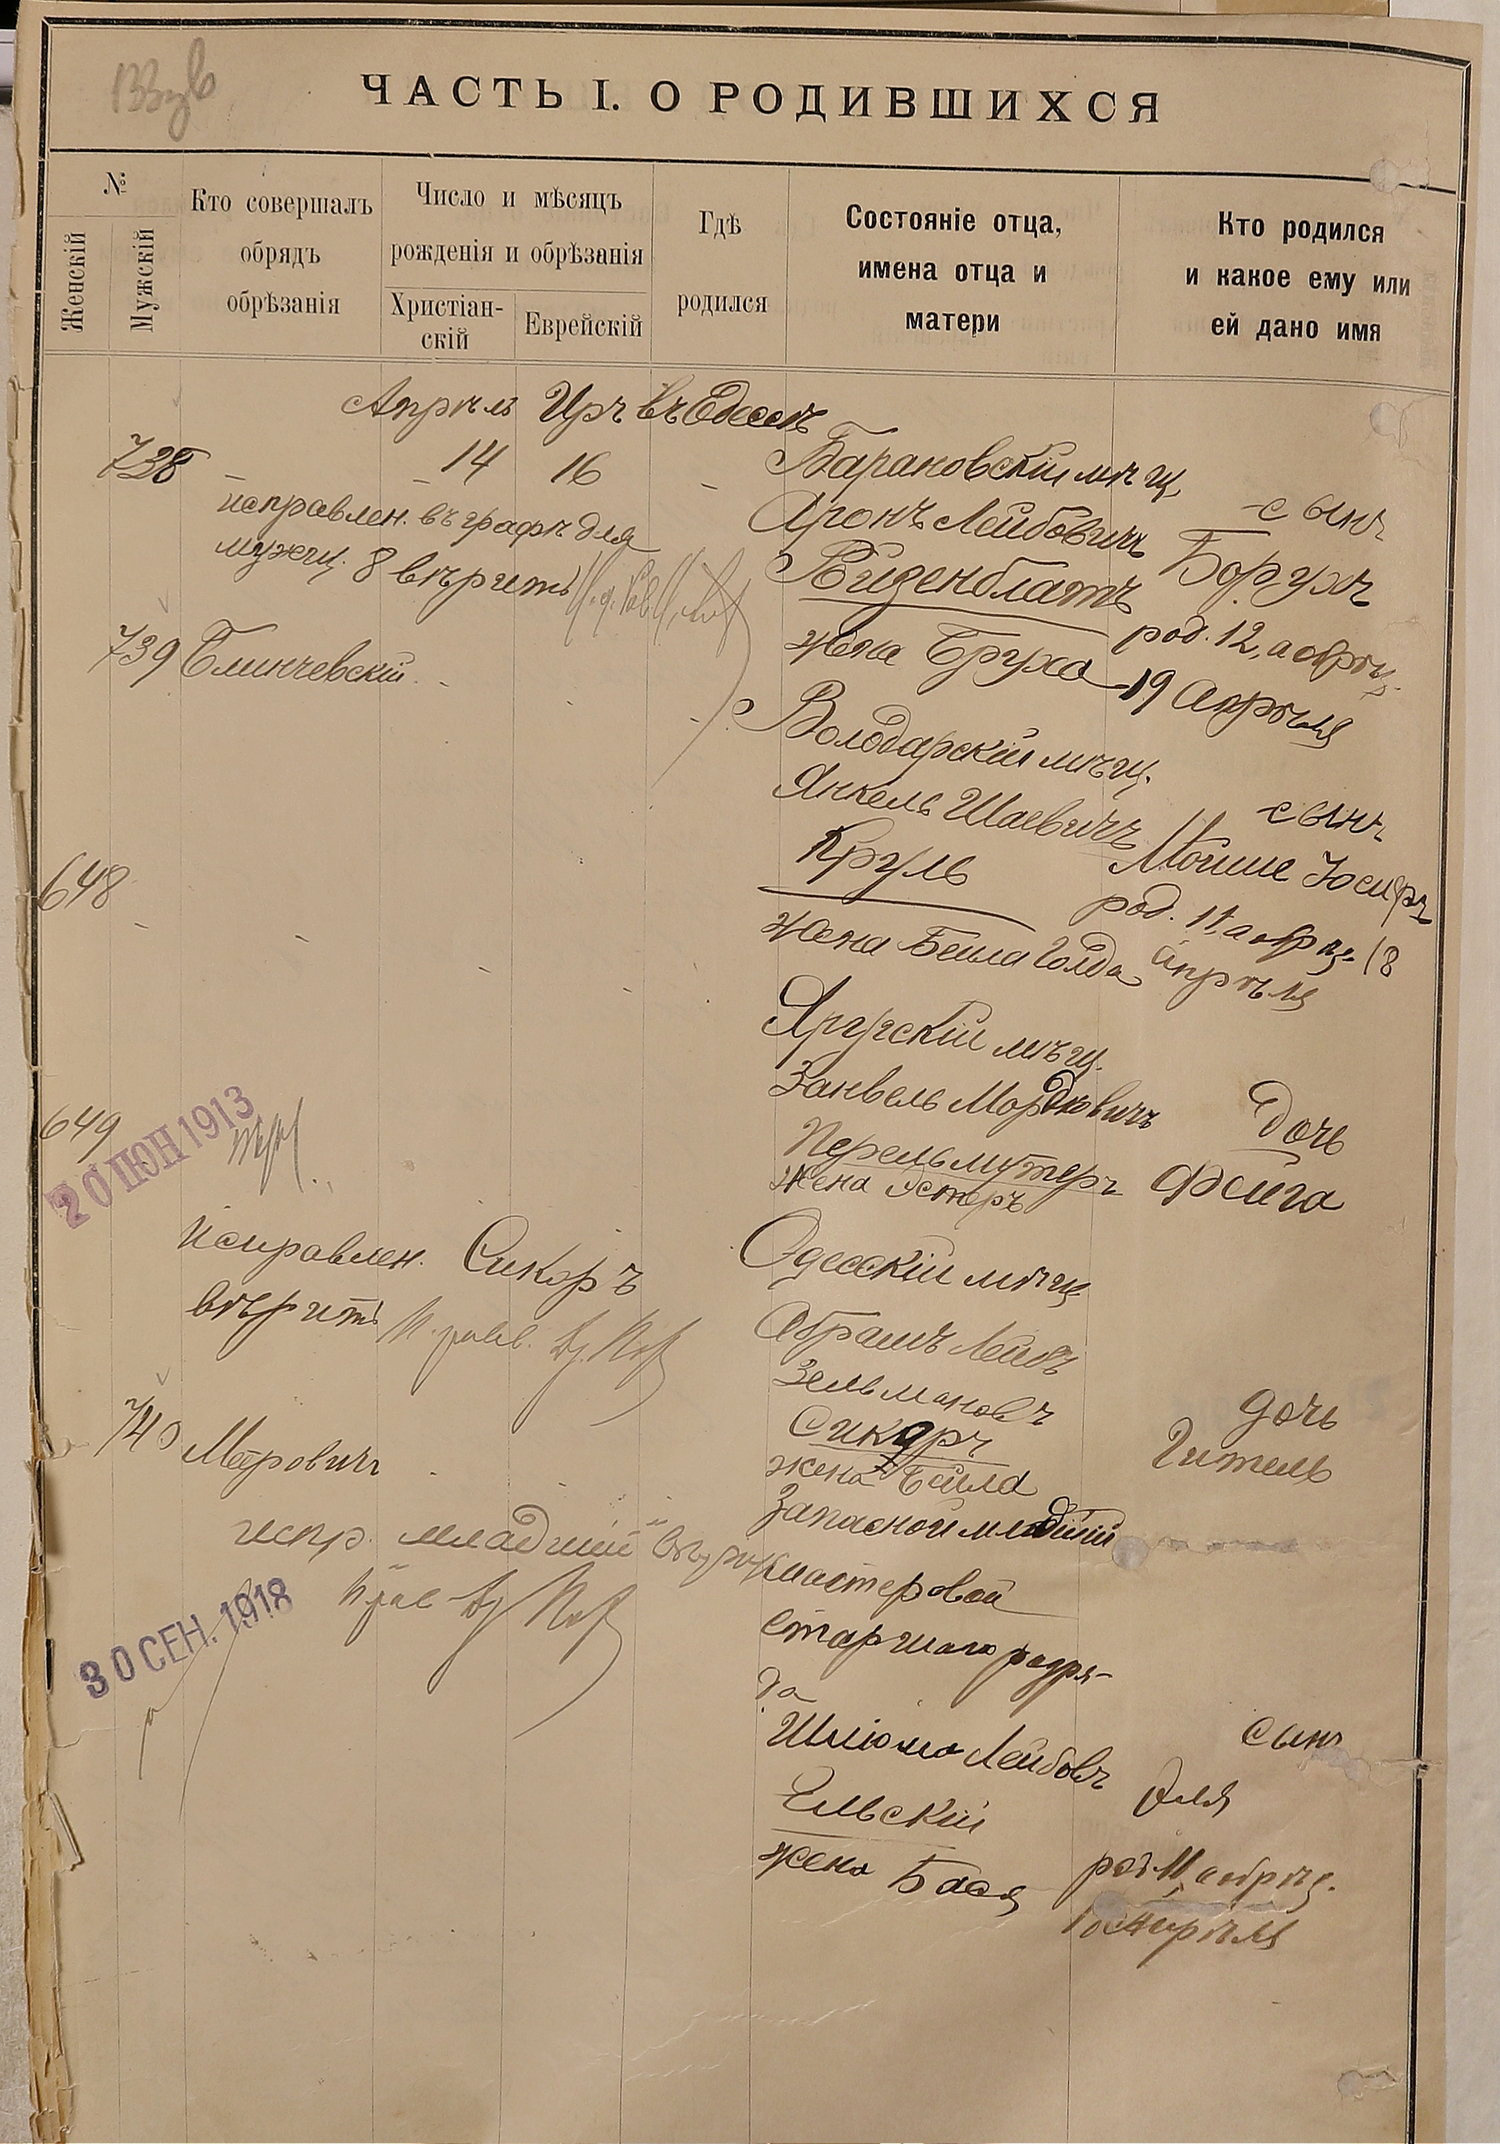 ЧАСТЬ I. О РОДИВШИХСЯ
№
Женскій
Мужскій
Кто совершалъ
обрядъ
обрѣзанія
Число и мѣсяцъ
рожденія и обрѣзанія
Христіан-
скій
Еврейскій
Гдѣ
родился
Состояніе отца,
имена отца и
матери
Кто родился
и какое ему или
ей дано имя
Апрѣль Иръ въ Одессѣ
738 14 16
исправлен. въ графѣ для
мужч. 8 вѣрить
Барановскій мѣщ.
Аронъ Лейбовичъ
Визенблатъ
жена Бруха
сынъ
Борухъ
род. 12, а обрѣз.
19 Апрѣля
739 Блинчевскій
Володарскій мѣщ.
Янкель Шаевичъ
Круль
жена Бейла Голда
сынъ
Мойше Юсифъ
род. 11, а обрѣз. 18
Апрѣля
648
Яругскій мѣщ.
Занвель Мордковичъ
Перельмутеръ
жена Эстеръ
дочь
Фейга
649
20 ІЮН 1913
исправлен. Сикоръ
вѣрить
Одесскій мѣщ
Абрамъ Лейбъ
Зельмановъ
Сикоръ
жена Бейла
дочь
Гитель
740 Меровичъ
испр. младшій
30 СЕН. 1918
Запасной младшій
мастеровой
старшаго разря-
да
Шлиома Лейбовъ
Ельскій
жена Бася
сынъ
Эля
род. 11, а обрѣз.
Апрѣля